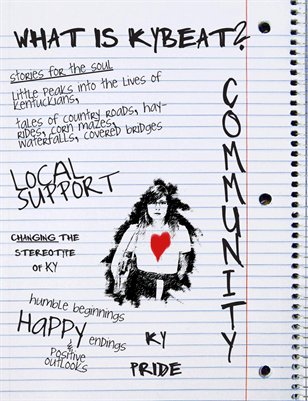 WHAT IS KYBEAT?
stories for the soul
Little Peaks into the Lives of
Kentuckians,
tales of country roads, hay-
rides, corn mazes,
waterfalls, covered bridges
COMMUNITY
LOCAL
SUPPORT
CHANGING THE
STEREOTYPE
OF KY
humble beginnings
Happy endings
&
Positive
outlooks
KY
PRIDE